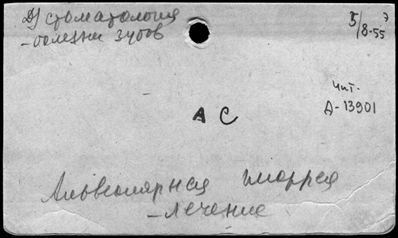 Д) стоматология
- болезни зубов
5/8-55
7
чит.
Д-13901
А С
Альвеолярная пиоррея
- лечение